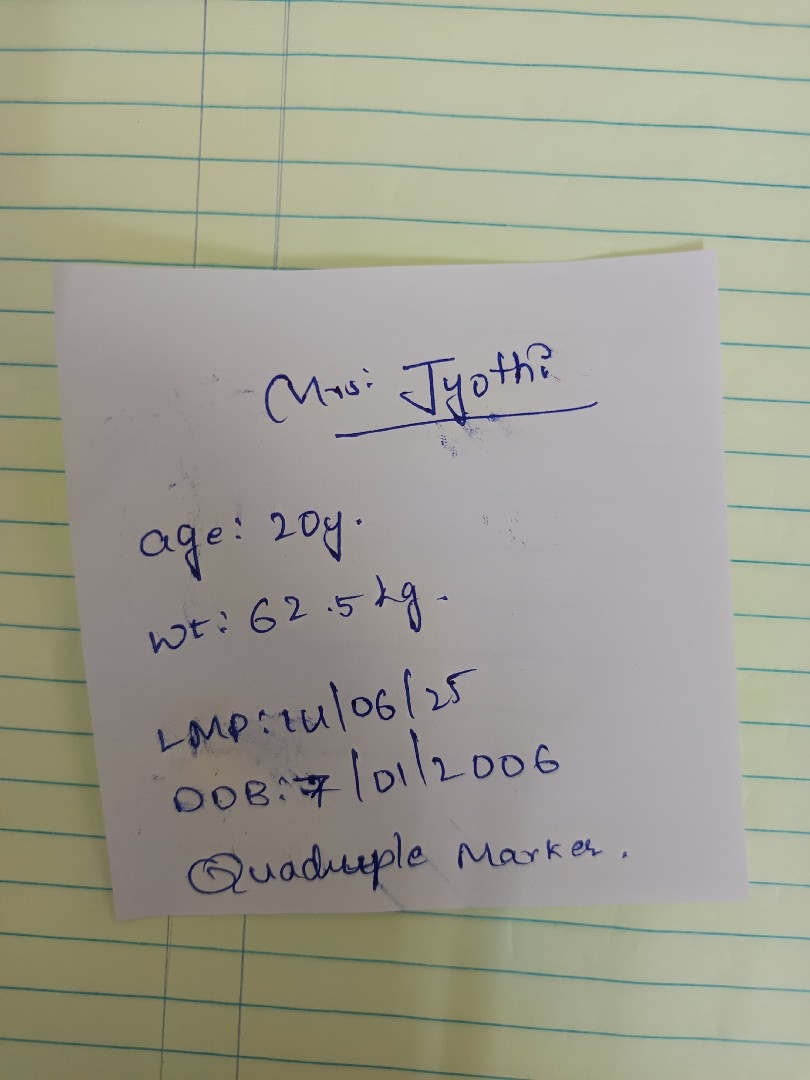 Mrs: Jyothi
age: 20y.
Wt: 62.5 kg.
LMP: 14/06/25
DOB: 7/01/2006
Quadruple Marker.